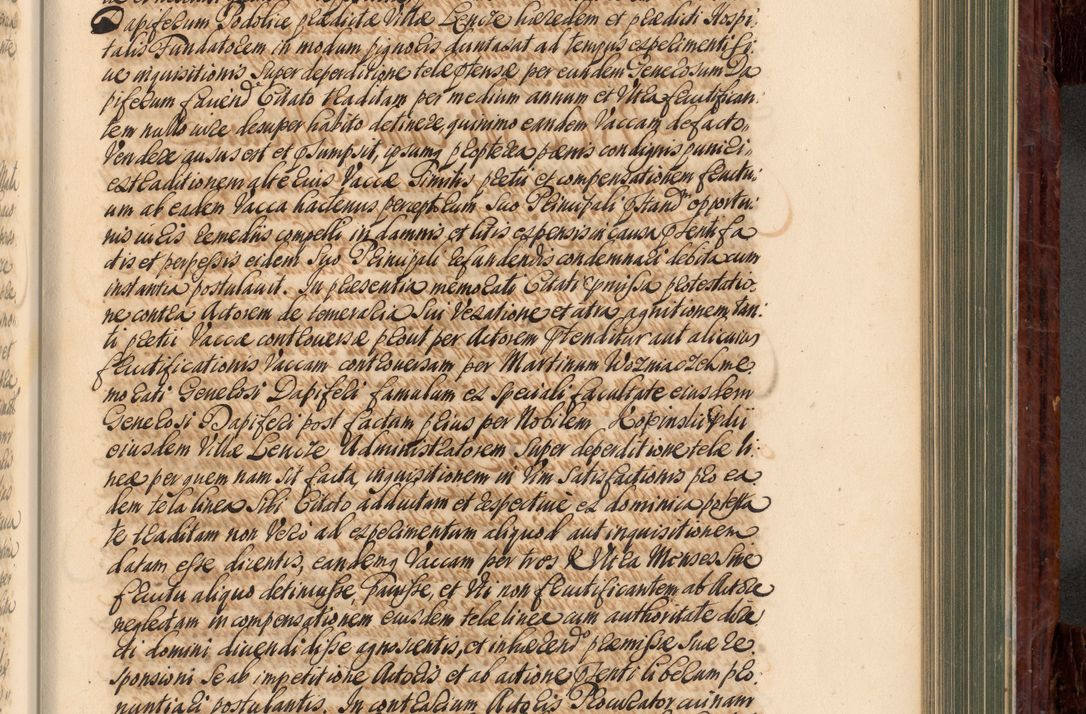 Dapiferum Podoliæ prædictæ Villæ Lencze hæredem et prædicti Hospi:
talis Fundatorem in modum pignoris duntaxat ad tempus experimenti si:
ue inquisitionis super deperditione telæ Ptensæ per eundem Generosum Da
piferum faciend Citato traditam per medium annum et Vltra fructifican:
tem nullo iure desuper habito detinere, quinimo eandem Vaccam de facto
Vendere ausus est et Psumpsit, ipsumq propterea pœnis condignis puniri
et traditionem alterius Vaccæ Similis pretii et compensationem fructu:
um ab eadem Vacca hactenus perceptorum Suo Principali Pstand opportu:
nis iuris remediis compelli in damnis et litis expensis in causa Psenti fa
ctis et perpessis eidem Suo Principali refundendis condemnari debitarum
instantia postulauit. In præsentia memorati Citati Pmissa protestatio:
ne contra Actorem de temeraria Sui Vexatione et citra agnitionem tan:
ti pretii Vaccæ controuersæ prout per Actorem Ptenditur aut alicuius
fructificationis Vaccam controuersam per Martinum Wozniaczek me
morati Generosi Dapiferi famulum ex speciali facultate eiusdem
Generosi Dapiferi post factam prius per Nobilem Kopinski Pdii
eiusdem Villæ Lencze Administratorem super deperditione telæ li:
neæ per quem nam sit facta, inquisitionem in Vim Satisfactionis pro ea
dem tela linea Sibi Citato addictam et respectiue ex dominica potesta
te traditam non Vero ad experimentum aliquod aut inquisitionem
datam esse dicentis, eandemq Vaccam per tres & Vltra Menses sine
fructu aliquo detinuisse, Pauisse, et Vti non fructificantem ab Actore
neglectam in compensationem eiusdem telæ lineæ cum authoritate dicti
cti domini diuendidisse agnoscentis, et inhærend præmissæ Suæ re
sponsioni Se ab impetitione Actoris et ab actione Psenti liberum pro:
nuntiari postulantis. In contrarium Actoris Procurator cui nam